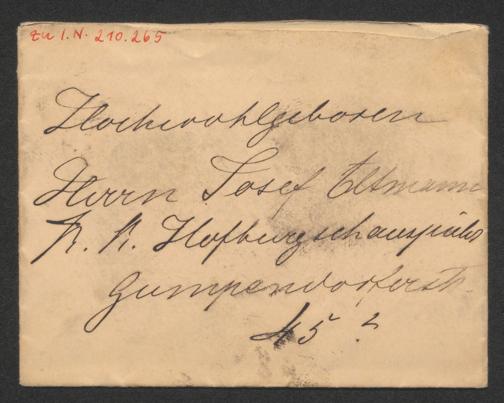 zu I.N. 210.265
Hochwohlgeboren
Herrn Josef Eltmann
K. K. Hofburgschauspieler
Gumpendorferstr.
45 ?